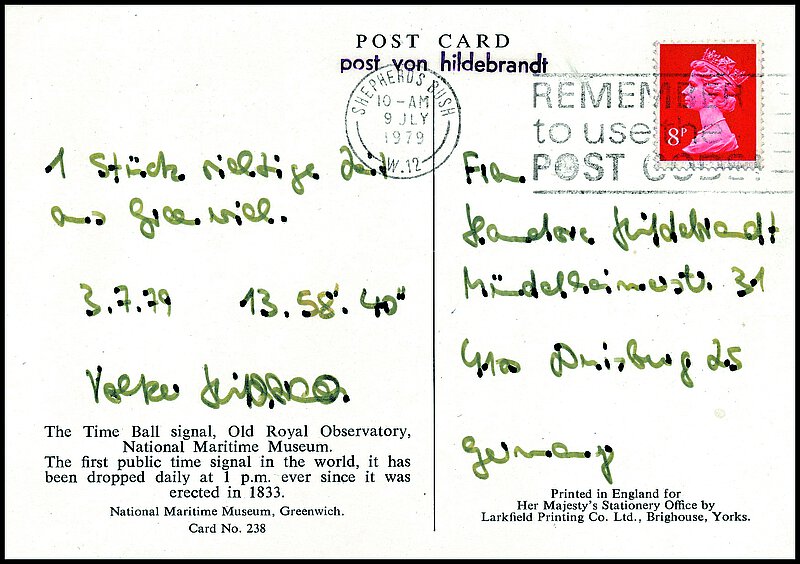 POST CARD
post von hildebrandt
SHEPHERDS BUSH
10-AM
9 JLY
1979
W.12
REMEMBER
to use the
POST CODE
8P
1 Stück richtige Zeit
aus Greenwich.
3.7.79 13.58'.40"
Volker Hildebrandt
Frau
Hildebrandt
Mündelheimerstr. 31
4100 Duisburg 25
Germany
The Time Ball signal, Old Royal Observatory,
National Maritime Museum.
The first public time signal in the world, it has
been dropped daily at 1 p.m. ever since it was
erected in 1833.
National Maritime Museum, Greenwich.
Card No. 238
Printed in England for
Her Majesty's Stationery Office by
Larkfield Printing Co. Ltd., Brighouse, Yorks.